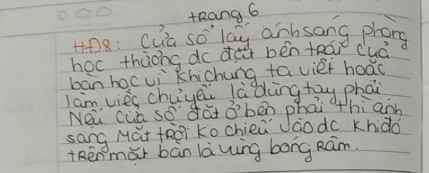 tRang 6
HĐ8: Cửa sổ lấy ánh sáng phòng
học thường dc đặt bên tRái của
bàn học vì khi chúng ta viết hoặc
làm việc chủ yếu là dùng tay phải
Nếu cửa sổ đặt ở bên phải thì ánh
sáng Mặt tRời ko chiếu vào dc khi đó
tRên mặt bàn là vùng bóng Râm.